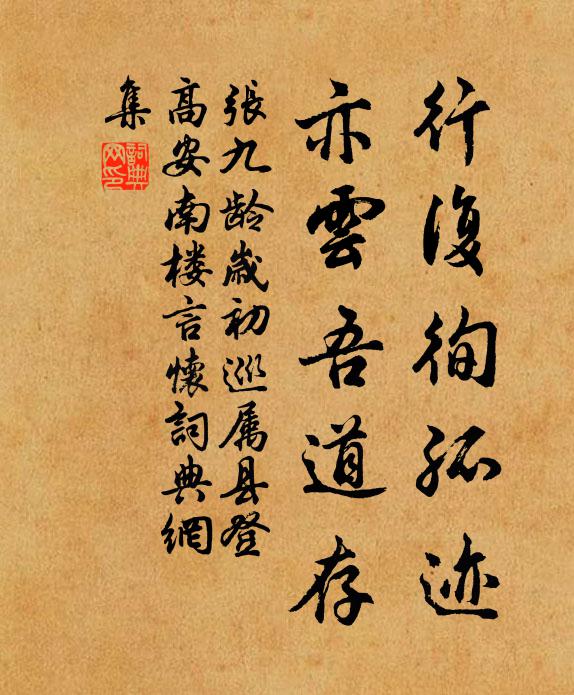 行復徇孤迹
亦雲吾道存
張九龄歲初巡属县登
高安南楼言懷詞典網
集
詞典
网印